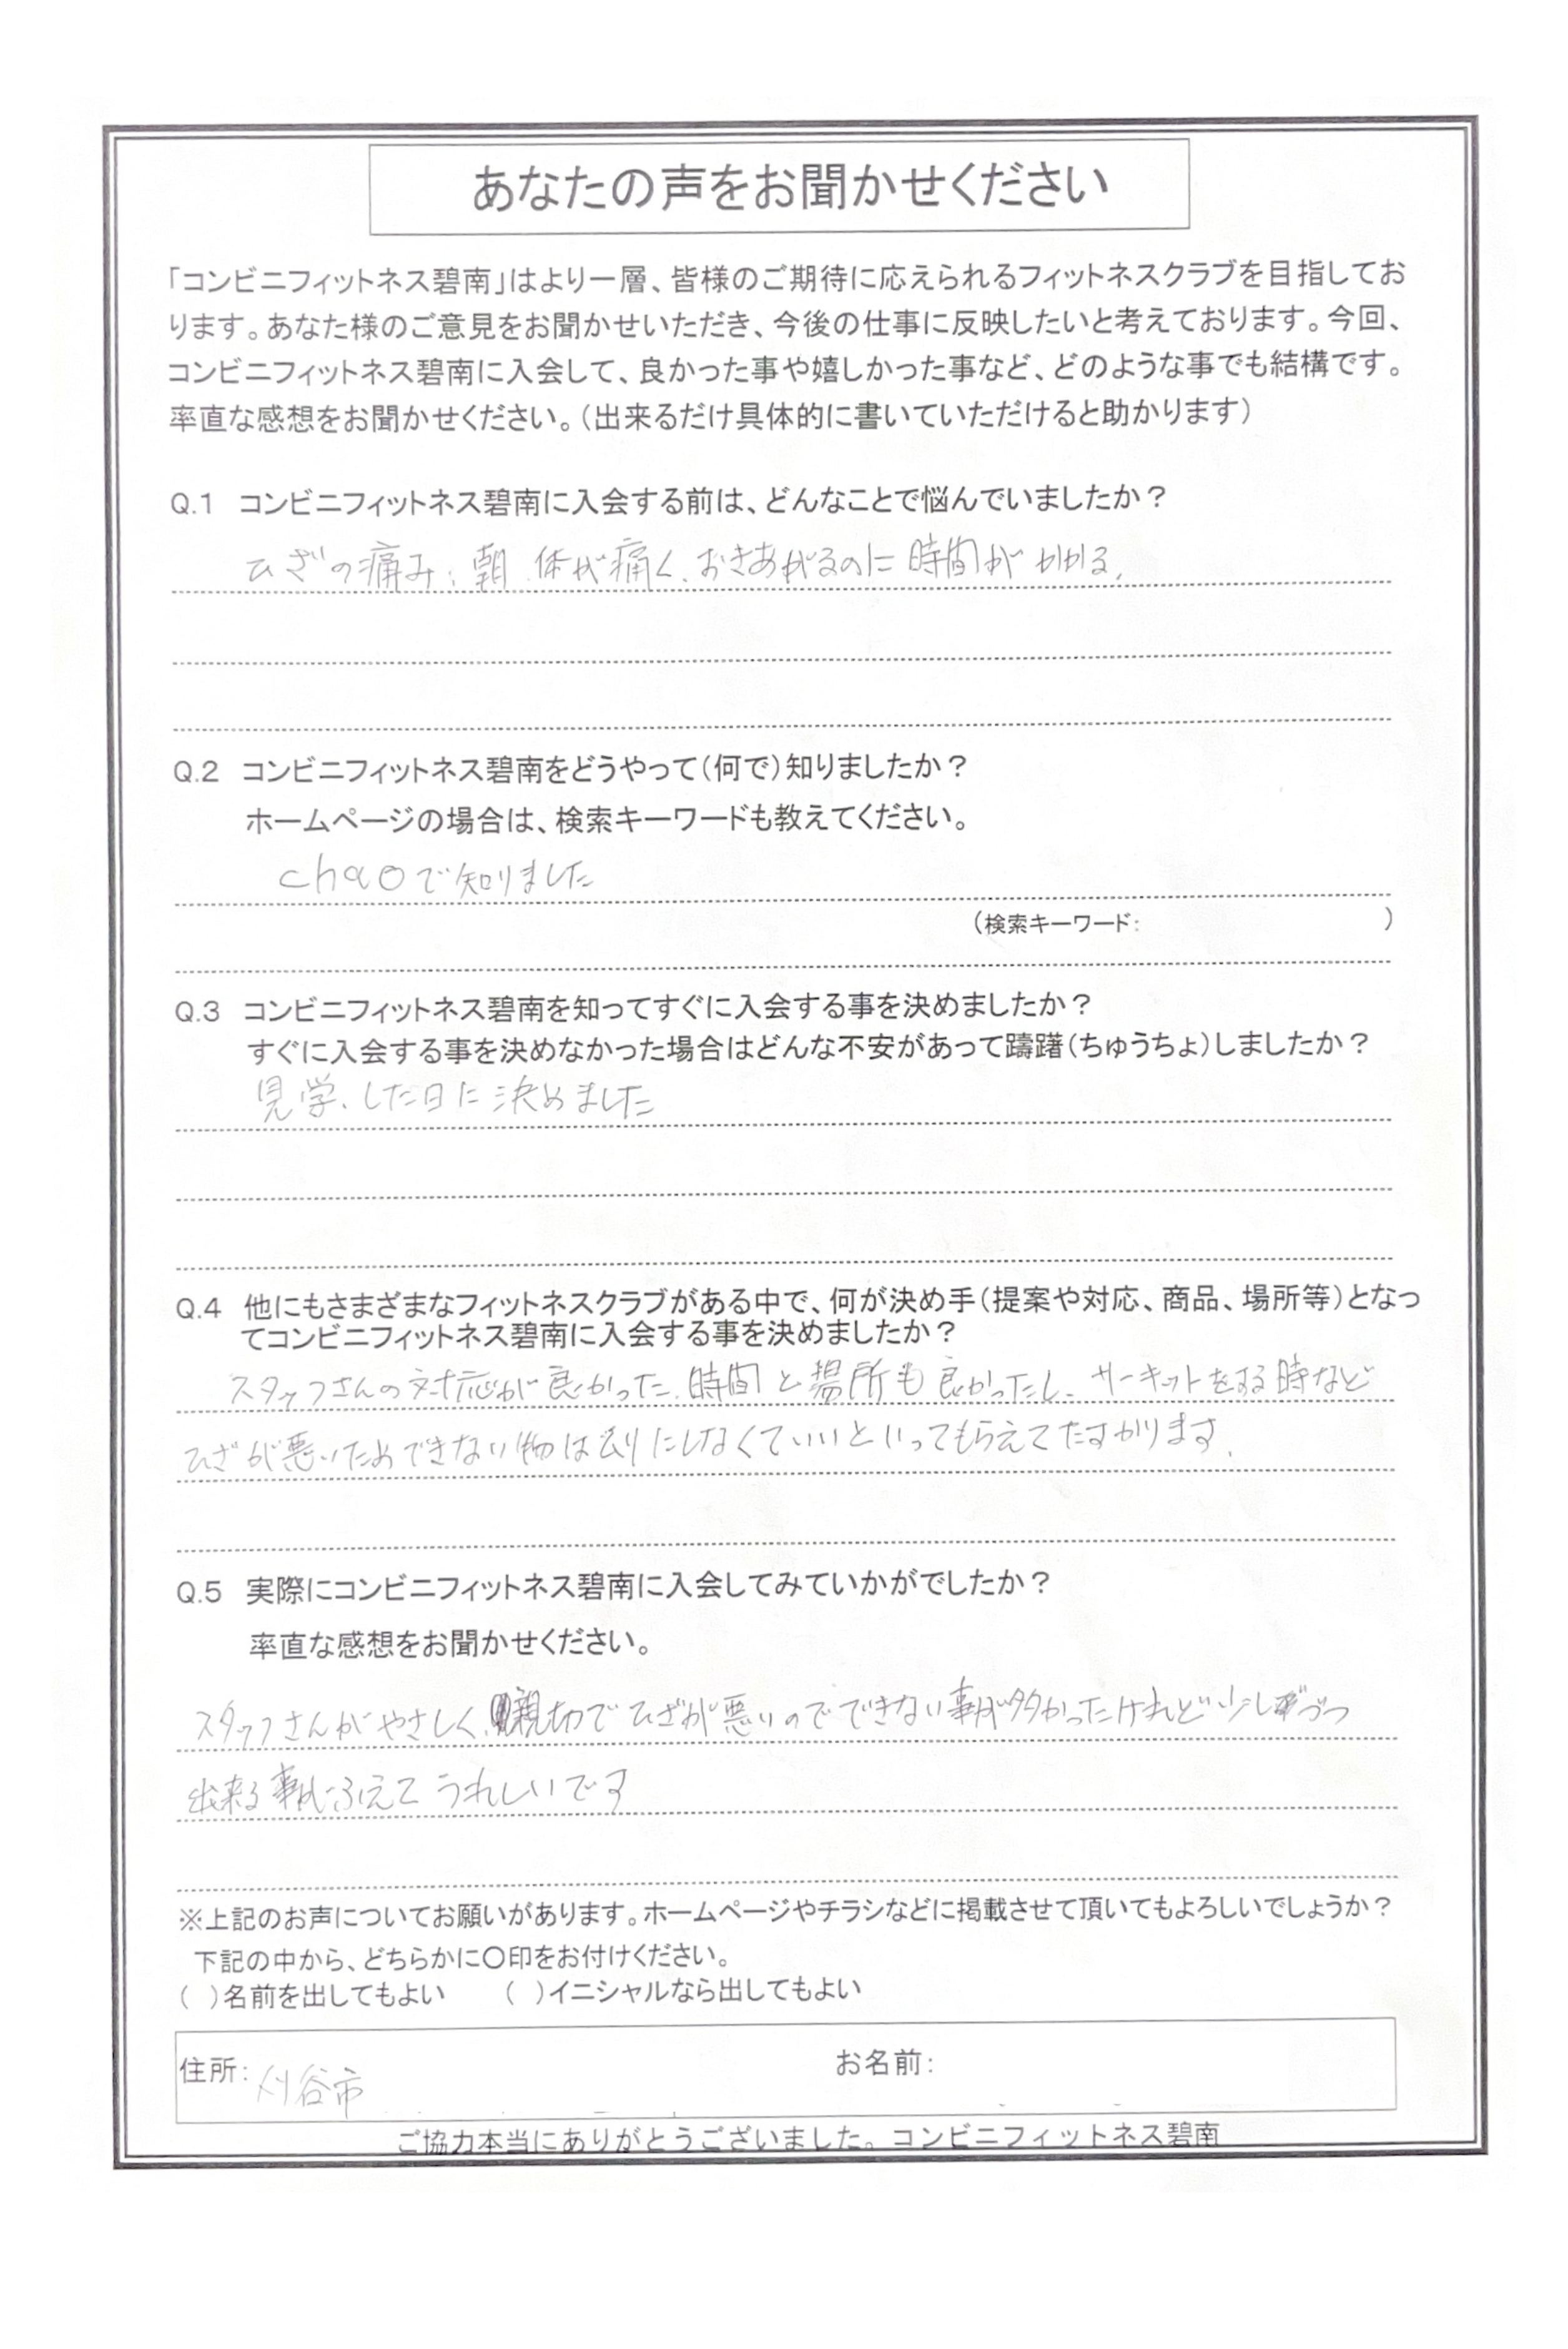 あなたの声をお聞かせください
「コンビニフィットネス碧南」はより一層、皆様のご期待に応えられるフィットネスクラブを目指してお
ります。あなた様のご意見をお聞かせいただき、今後の仕事に反映したいと考えております。今回、
コンビニフィットネス碧南に入会して、良かった事や嬉しかった事など、どのような事でも結構です。
率直な感想をお聞かせください。（出来るだけ具体的に書いていただけると助かります）
Q.1 コンビニフィットネス碧南に入会する前は、どんなことで悩んでいましたか？
ひざの痛み、朝、体が痛く、おきあがるのに時間がかかる。
Q.2 コンビニフィットネス碧南をどうやって（何で）知りましたか？
ホームページの場合は、検索キーワードも教えてください。
chaoで知りました
（検索キーワード： ）
Q.3 コンビニフィットネス碧南を知ってすぐに入会する事を決めましたか？
すぐに入会する事を決めなかった場合はどんな不安があって躊躇（ちゅうちょ）しましたか？
見学、した日に決めました
Q.4 他にもさまざまなフィットネスクラブがある中で、何が決め手（提案や対応、商品、場所等）となっ
てコンビニフィットネス碧南に入会する事を決めましたか？
スタッフさんの対応が良かった、時間と場所も良かったし、サーキットをする時など
ひざが悪いためできない物はムリにしなくていいといってもらえてたすかります。
Q.5 実際にコンビニフィットネス碧南に入会してみていかがでしたか？
率直な感想をお聞かせください。
スタッフさんがやさしく、親切でひざが悪いのでできない事が多かったけれど少しづつ
出来る事がふえてうれしいです
※上記のお声についてお願いがあります。ホームページやチラシなどに掲載させて頂いてもよろしいでしょうか？
下記の中から、どちらかに〇印をお付けください。
（ ）名前を出してもよい （ ）イニシャルなら出してもよい
住所： 刈谷市 お名前：
ご協力本当にありがとうございました。コンビニフィットネス碧南